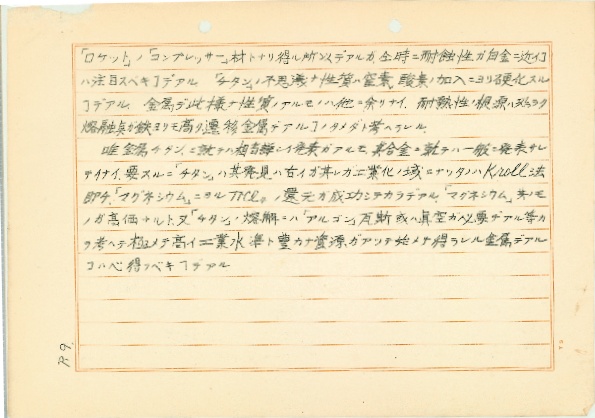 「ロケット」ノ「コンプレッサー」材トナリ得ル所以デアルガ、同時ニ耐蝕性ガ白金ニ近イ┐
ハ注目スベキ┐デアル 「チタン」ノ不思議ナ性質ハ窒素、酸素ノ加入ニヨリ硬化スル
┐デアル、金属デ此様ナ性質ノアルモノハ他ニ余リナイ、耐熱性ノ根源ハ恐ラク
熔融点ガ鉄ヨリモ高ク遷移金属デアル┐ノタメダト考ヘラレル、
唯金属チタンニ就テハ相当詳シイ発表ガアルモ、其合金ニ就テハ一般ニ発表サレ
テイナイ、要スルニ「チタン」ハ其発見ハ古イガ其レガ工業化ノ域ニナッタノハKroll法
即チ、「マグネシウム」ニヨルTiCl₄ノ還元ガ成功シテカラデアル、「マグネシウム」其ノモ
ノガ高価ナルト、又「チタン」ノ熔解ニハ「アルゴン」瓦斯或ハ真空ガ必要デアル等カ
ラ考ヘテ極メテ高イ工業水準ト豊カナ資源ガアッテ始メテ得ラレル金属デアル
コハ心得ウベキ┐デアル
P.9.